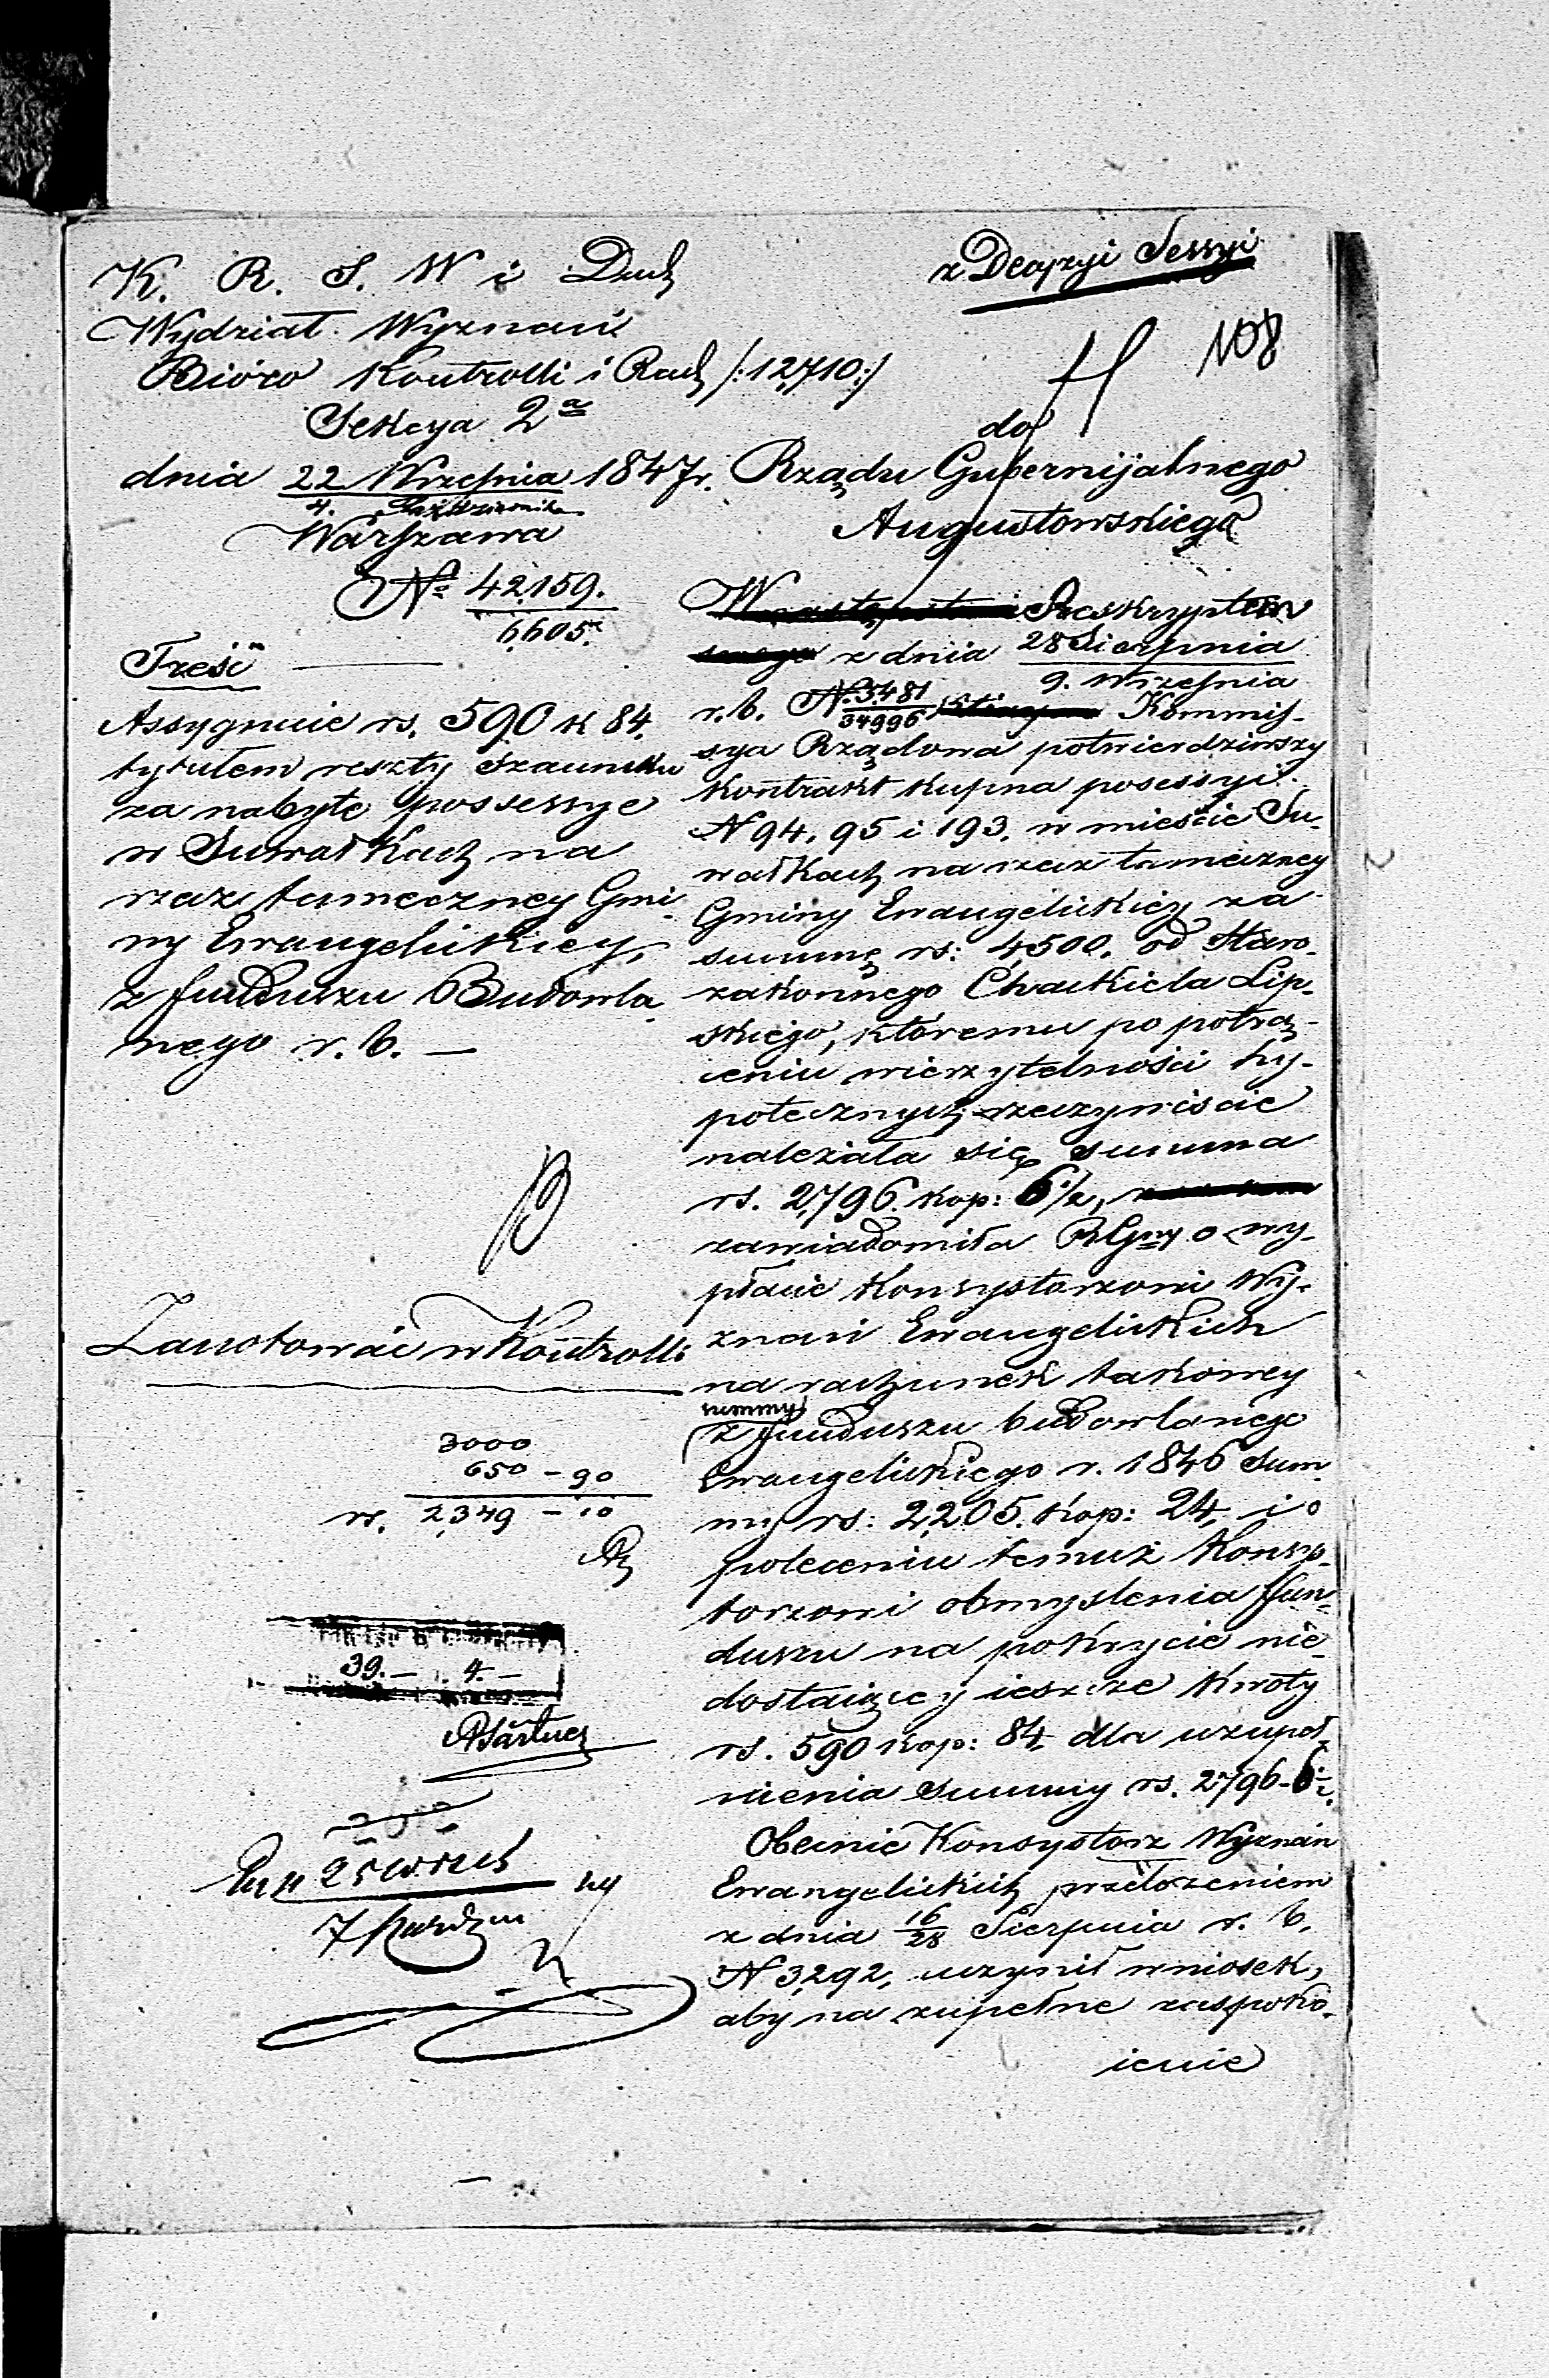 z Decyzyi Sessyi
108
K. R. S. W i Duch
Wydział Wyznań
Bióro Kontrolli i Rach /:12,710:/
Sekcya 2a
dnia 22 Września 1847r.
4. Października
Warszawa
No 42,159.
6,605.
Treść
Assygnuie rs. 590 k 84.
tytułem reszty szacunku
za nabyte possessye
w Suwałkach na
rzecz tameczney Gmi-
ny Ewangelickiey,
z funduszu Budowla-
nego r. b. —
Zanotować w Kontrolli
3000
650 - 90
rs. 2,349 - 10
39. - 4. -
do
Rządu Gubernijalnego
Augustowskiego
Reskryptem
z dnia 28 Sierpnia
9. Września
r. b. N. 3481
34996 Kommis-
sya Rządowa potwierdziwszy
kontrakt kupna posessyi
N 94, 95 i 193, w mieście Su-
wałkach na rzecz tameczney
Gminy Ewangelickiey za
summę rs: 4,500. od Staro-
zakonnego Chackiela Lip-
skiego, któremu po potrą-
ceniu wierzytelności hy-
potecznych rzeczywiście
należała się summa
rs. 2,796. kop: 6 1/2,
zawiadomiła RGny o wy-
płacie Konsystorzowi Wy-
znań Ewangelickich
na rachunek takowey
summy
z funduszu budowlanego
Ewangelickiego r. 1846 Sum-
my rs: 2,205. kop: 24, i o
poleceniu temuż Konsys-
torzowi obmyślenia fun-
duszu na pokrycie nie-
dostaiącey ieszcze kwoty
rs. 590 kop: 84, dla uzupeł-
nienia Summy rs. 2796 - 6 1/2.
Obecnie Konsystorz Wyznań
Ewangelickich przełożeniem
z dnia 16/28 Sierpnia r. b.
N 3,292, uczynił wniosek,
aby na zupełne zaspoko-
ienie